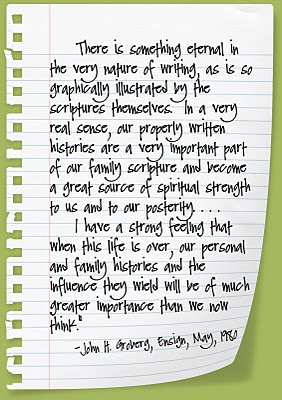 There is something eternal in
the very nature of writing, as is so
graphically illustrated by the
scriptures themselves. In a very
real sense, our properly written
histories are a very important part
of our family scripture and become
a great source of spiritual strength
to us and to our posterity . . . .
I have a strong feeling that
when this life is over, our personal
and family histories and the
influence they wield will be of much
greater importance than we now
think."
-John H. Groberg, Ensign, May, 1980